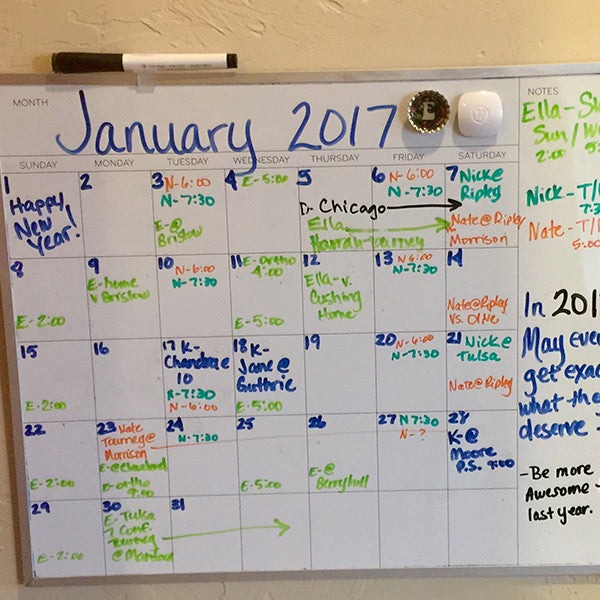 MONTH
January 2017
E
NOTES
SUNDAY MONDAY TUESDAY WEDNESDAY THURSDAY FRIDAY SATURDAY
1
Happy
New
Year!
2
3 N-6:00
N-7:30
E-@
Bristow
4 E-5:00
5
D- Chicago
Ella
Hannah-tourney
6 N-6:00
N-7:30
7 Nick@
Ripley
Nate@Ripley
Morrison
8
E-2:00
9
E-home
v Bristow
10
N-6:00
N-7:30
11 E-Ortho
4:00
E-5:00
12
Ella-v.
Cushing
Home
13 N 6:00
N-7:30
14
Nate@Ripley
vs. Olive
15
E-2:00
16
17 K-
Chandler
10
N-7:30
N-6:00
18 K-
Jane@
Guthrie
E-5:00
19
20 N-6:00
N-7:30
21 Nick@
Tulsa
Nate@Ripley
22
E-2:00
23 Nate
Tourney@
Morrison
E-@Cleveland
E-ortho
9:00
24
N-7:30
25
E-5:00
26
E-@
Berryhill
27 N 7:30
N-?
28
K-@
Moore
P.S. 9:00
29
E-2:00
30
E-Tulsa
7 Conf.
Tourney
31
Ella-
Sun/
2:00
Nick-T/
Nate-T/
5:00
In 201
May
get
what
deserve
-Be more
Awesome
last year.